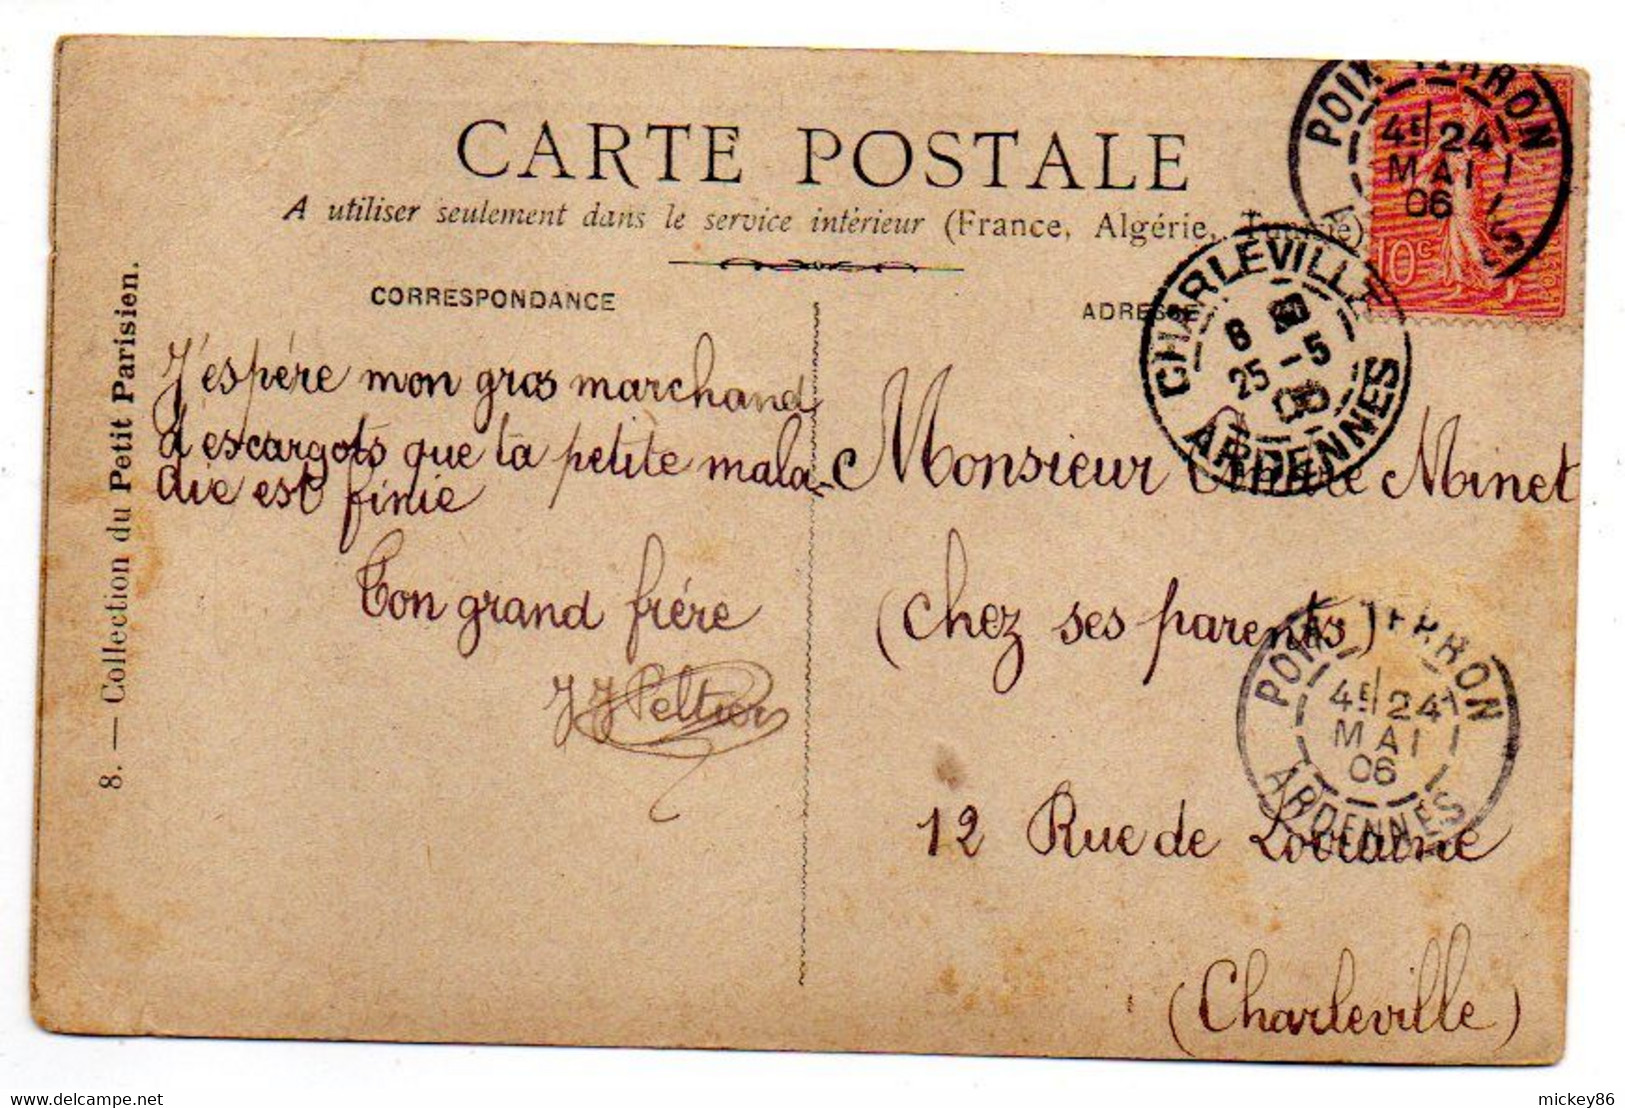 CARTE POSTALE
A utiliser seulement dans le service intérieur (France, Algérie, Tunisie)
CORRESPONDANCE
J'espére mon gros marchand
d'escargots que ta petite mala-
die est finie
Ton grand frére
JJ Peltier
ADRESSE
Monsieur Minet
(chez ses parents)
12 Rue de Lorraine
(Charleville)
8. — Collection du Petit Parisien.
POIX-TERRON
4E 24
MAI
06
10c
CHARLEVILLE
8
25 -5
ARDENNES
POIX-TERRON
4E 24
MAI
06
ARDENNES
www.delcampe.net
mickey86